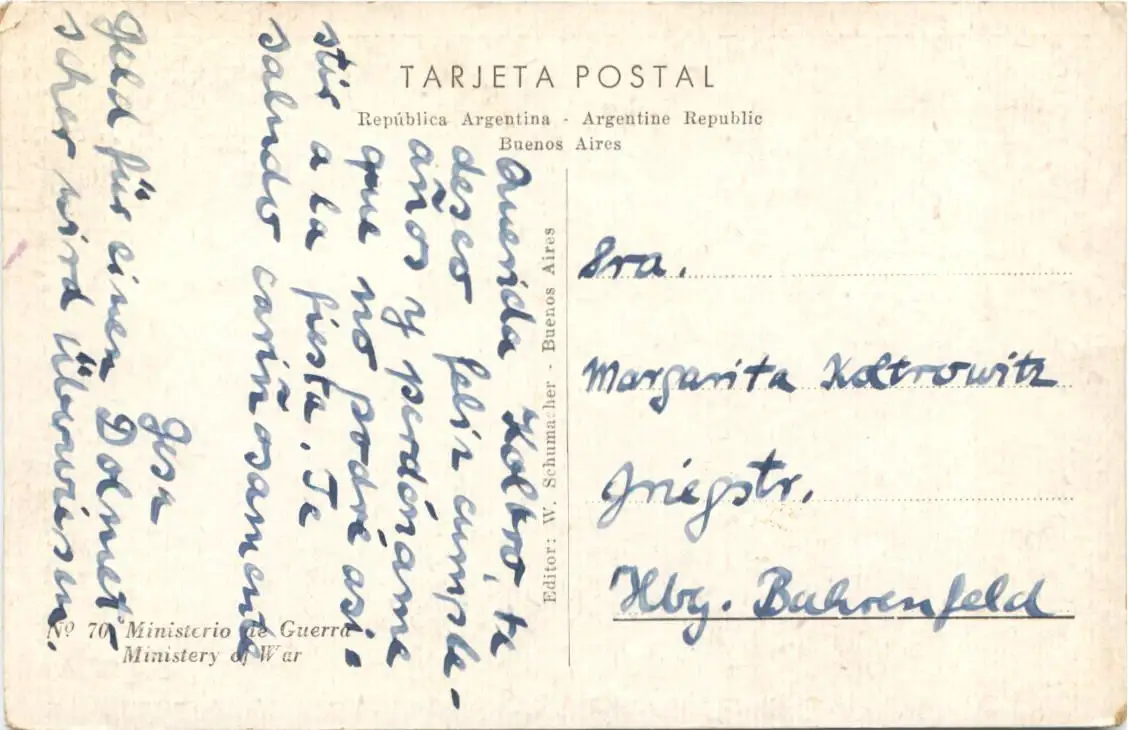 TARJETA POSTAL
República Argentina - Argentine Republic
Buenos Aires
Querida Koltro, te
deseo feliz cumple-
años y perdóname
que no podré asi-
stir a la fiesta. Te
saludo cariñosamente
Gesa
Geld für einen Dolmet-
scher wird überwiesen.
Editor: W. Schumacher - Buenos Aires
Sra.
Margarita Koltrowitz
Griegstr.
Hbg. Bahrenfeld
Nº 70 Ministerio de Guerra
Ministery of War